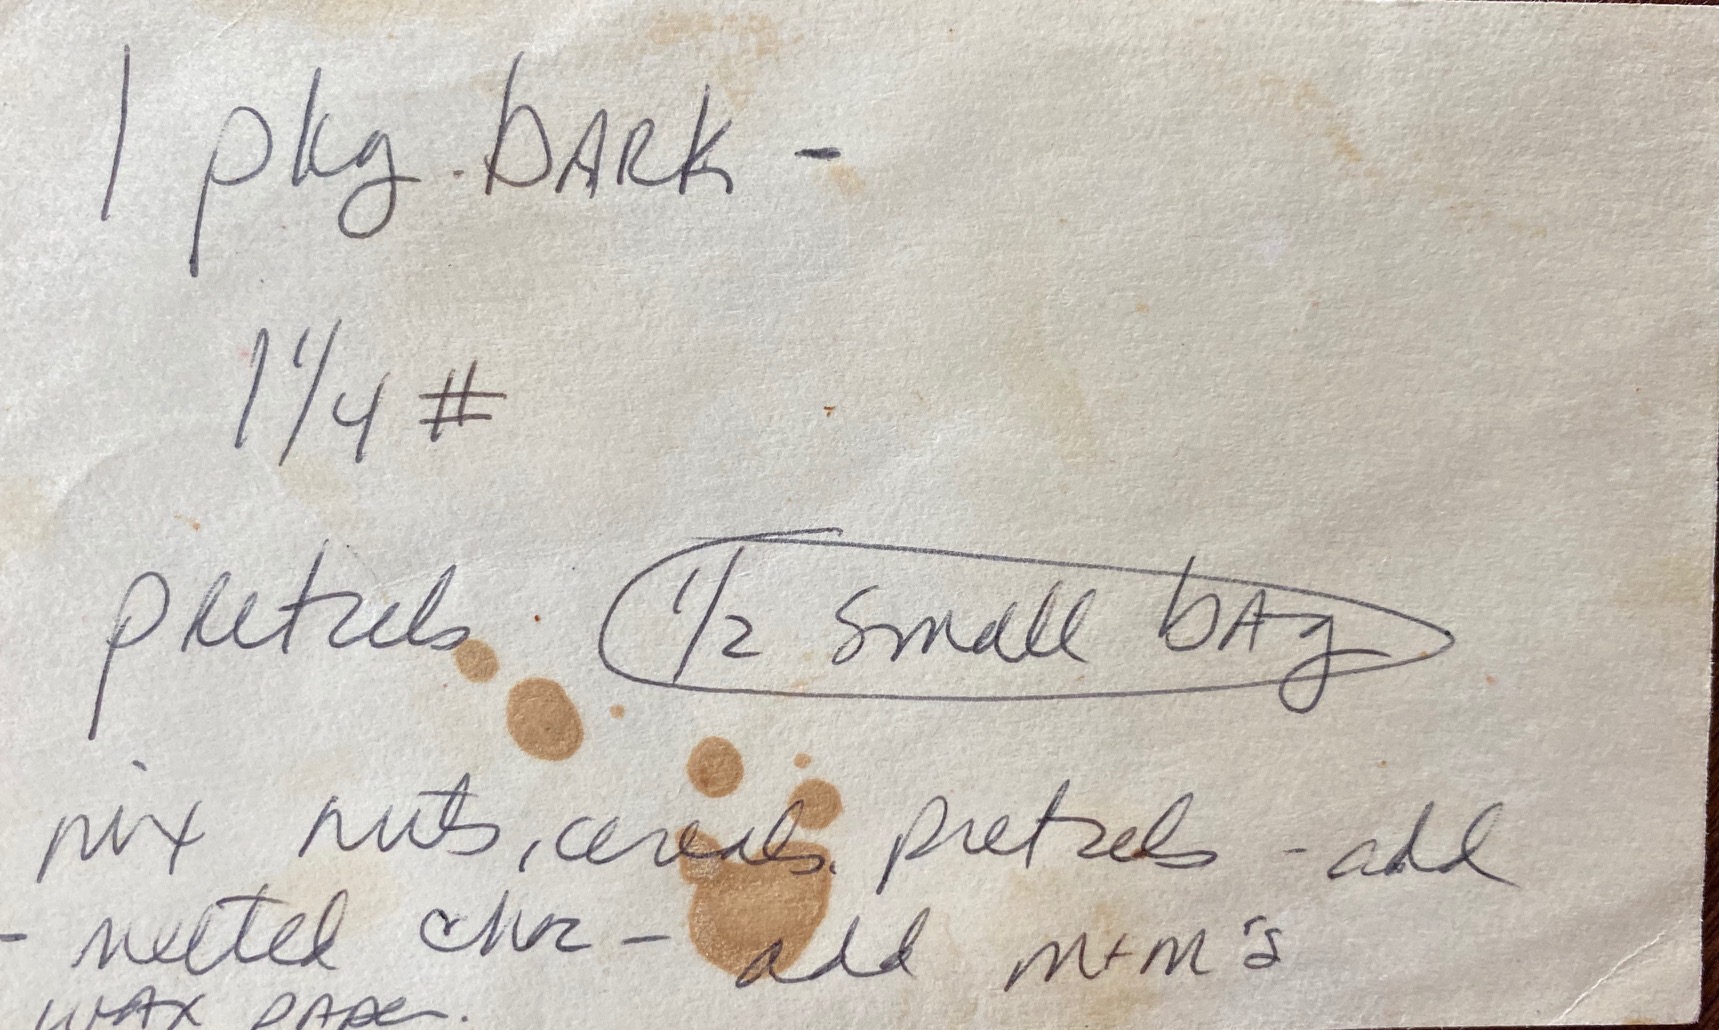 1 pkg. bARK -
1 1/4 #
pretzels 1/2 small bAg
mix nuts, cereals, pretzels - add
- melted choc - add M+M's
wax paper.